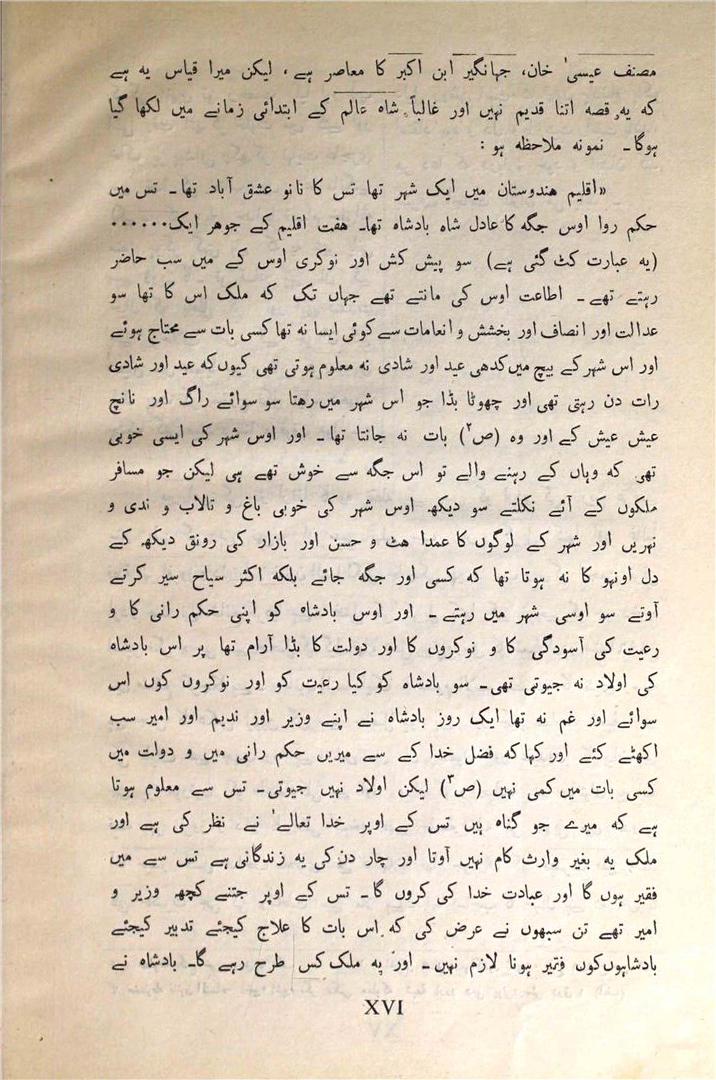 مصنف عیسیٰ خان، جہانگیر ابن اکبر کا معاصر ہے، لیکن میرا قیاس یہ ہے
کہ یہ قصہ اتنا قدیم نہیں اور غالباً شاہ عالم کے ابتدائی زمانے میں لکھا گیا
ہوگا۔ نمونہ ملاحظہ ہو :
«اقلیم ھندوستان میں ایک شہر تھا تس کا نانو عشق آباد تھا۔ تس میں
حکم روا اوس جگہ کا عادل شاہ بادشاہ تھا۔ ھفت اقلیم کے جوھر ایک......
(یہ عبارت کٹ گئی ہے) سو پیش کش اور نوکری اوس کے میں سب حاضر
رہتے تھے۔ اطاعت اوس کی مانتے تھے جہاں تک کہ ملک اس کا تھا سو
عدالت اور انصاف اور بخشش و انعامات سے کوئی ایسا نہ تھا کسی بات سے محتاج ہوئے
اور اس شہر کے بیچ میں کدھی عید اور شادی نہ معلوم ہوتی تھی کیوں کہ عید اور شادی
رات دن رہتی تھی اور چھوٹا بڈا جو اس شہر میں رھتا سو سوائے راگ اور نانچ
عیش عیش کے اور وہ (ص۲) بات نہ جانتا تھا۔ اور اوس شہر کی ایسی خوبی
تھی کہ وہاں کے رہنے والے تو اس جگہ سے خوش تھے ہی لیکن جو مسافر
ملکوں کے آئے نکلتے سو دیکھ اوس شہر کی خوبی باغ و تالاب و ندی و
نہریں اور شہر کے لوگوں کا عمدا ھٹ و حسن اور بازار کی رونق دیکھ کے
دل اونہو کا نہ ہوتا تھا کہ کسی اور جگہ جائے بلکہ اکثر سیاح سیر کرتے
آوتے سو اوسی شہر میں رہتے۔ اور اوس بادشاہ کو اپنی حکم رانی کا و
رعیت کی آسودگی کا و نوکروں کا اور دولت کا بڈا آرام تھا پر اس بادشاہ
کی اولاد نہ جیوتی تھی۔ سو بادشاہ کو کیا رعیت کو اور نوکروں کوں اس
سوائے اور غم نہ تھا ایک روز بادشاہ نے اپنے وزیر اور ندیم اور امیر سب
اکھٹے کئے اور کہا کہ فضل خدا کے سے میریں حکم رانی میں و دولت میں
کسی بات میں کمی نہیں (ص۳) لیکن اولاد نہیں جیوتی۔ تس سے معلوم ہوتا
ہے کہ میرے جو گناہ ہیں تس کے اوپر خدا تعالےٰ نے نظر کی ہے اور
ملک یہ بغیر وارث کام نہیں آوتا اور چار دن کی یہ زندگانی ہے تس سے میں
فقیر ہوں گا اور عبادت خدا کی کروں گا۔ تس کے اوپر جتنے کچھ وزیر و
امیر تھے تن سبھوں نے عرض کی کہ اس بات کا علاج کیجئے تدبیر کیجئے
بادشاہوں کوں فقیر ہونا لازم نہیں۔ اور یہ ملک کس طرح رہے گا۔ بادشاہ نے
XVI